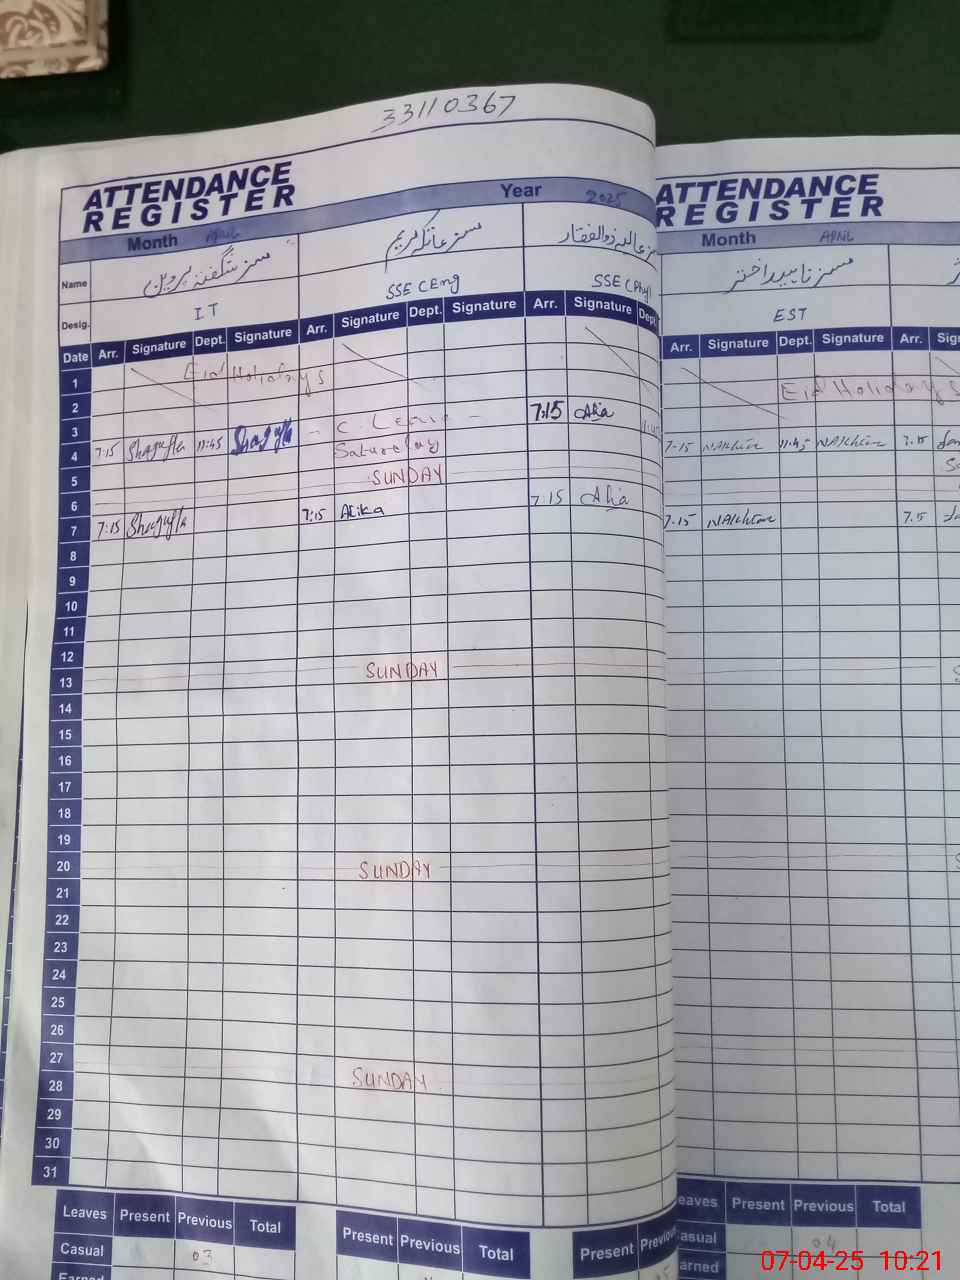 33110367
ATTENDANCE
REGISTER
Month APRIL Year 2025
Name مسز شگفتہ پروین مسز عاتکہ کریم مسز عالیہ ذوالفقار
Desig. IT SSE (Eng SSE (Phy)
Date Arr. Signature Dept. Signature Arr. Signature Dept. Signature Arr. Signature Dept.
1 Eid Holidays
2
3 7:15 Alia
4 7:15 Shagufta 11:45 Shagufta - C. Leave -
Saturday
5
6 SUNDAY
7 7:15 Shagufta 7:15 Atika 7:15 Alia
8
9
10
11
12
13 SUNDAY
14
15
16
17
18
19
20 SUNDAY
21
22
23
24
25
26
27
28 SUNDAY
29
30
31
Leaves Present Previous Total Present Previous Total Present Previous
Casual 03
Earned
ATTENDANCE
REGISTER
Month APRIL
مسز ناہید اختر
EST
Arr. Signature Dept. Signature Arr. Sig
Eid Holidays
7:15 NAkhtar 11:45 NAkhtar 7.15
7.15 NAkhtar 7.5
eaves Present Previous Total
asual 04
arned
07-04-25 10:21